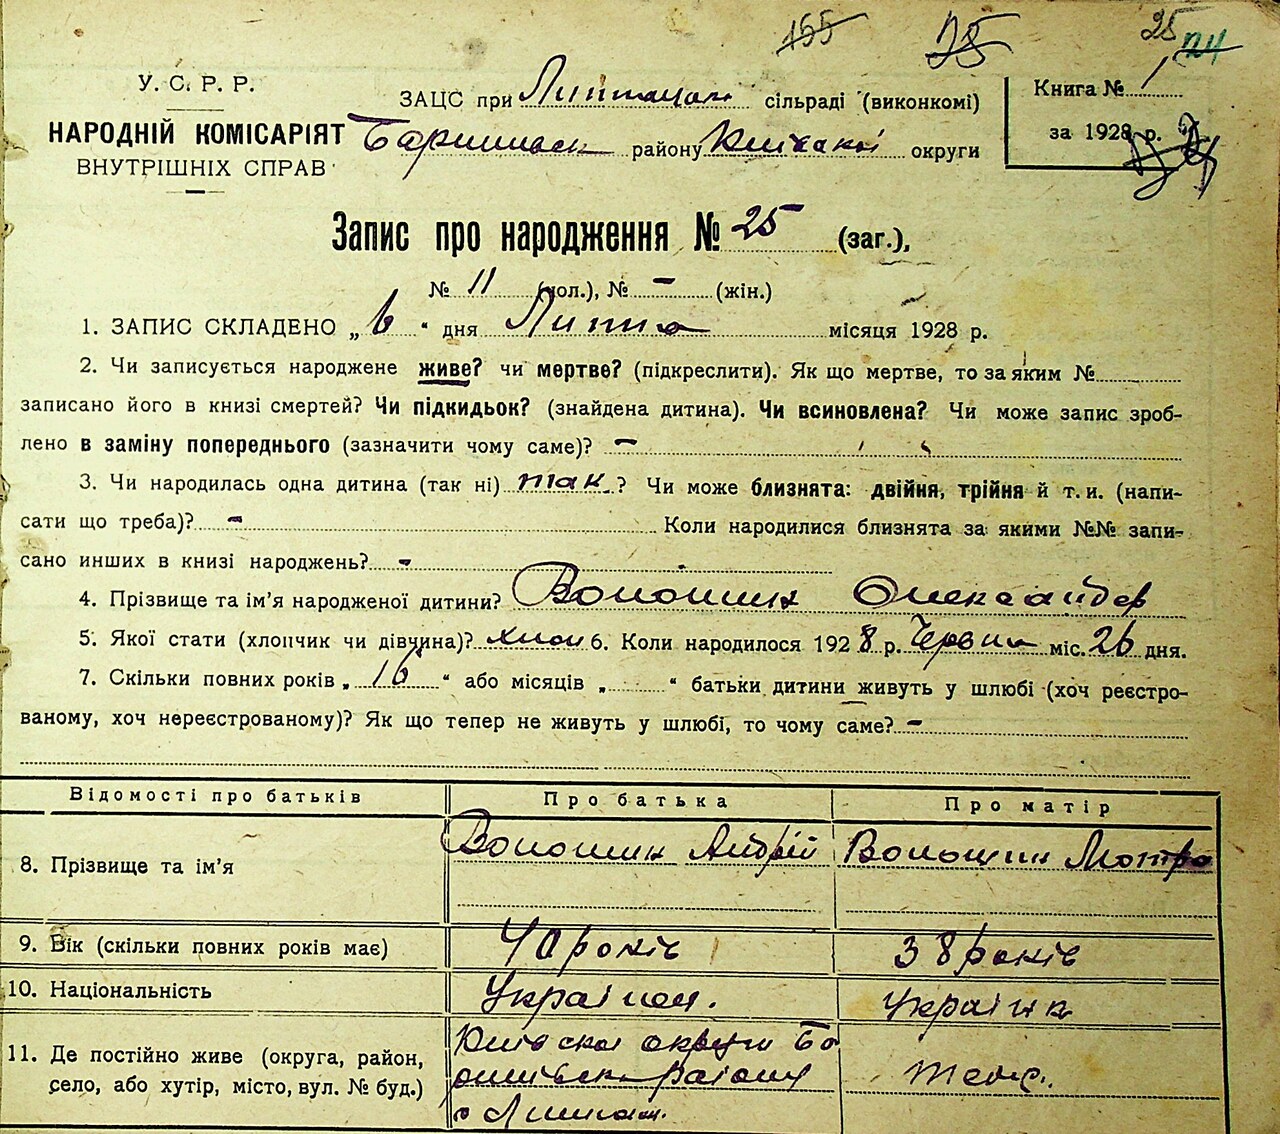 155 75 25 24
У. С. Р. Р.
НАРОДНІЙ КОМІСАРІЯТ
ВНУТРІШНІХ СПРАВ
ЗАЦС при сільраді (виконкомі)
району округи
Книга № 1
за 1928 р.
Запис про народження № 25 (заг.),
№ 11 (чол.), № – (жін.)
1. ЗАПИС СКЛАДЕНО „6“ дня Липня місяця 1928 р.
2. Чи записується народжене живе? чи мертве? (підкреслити). Як що мертве, то за яким №
записано його в книзі смертей? Чи підкидьок? (знайдена дитина). Чи всиновлена? Чи може запис зроб-
лено в заміну попереднього (зазначити чому саме)? –
3. Чи народилась одна дитина (так ні) так ? Чи може близнята: двійня, трійня й т. и. (напи-
сати що треба)? – Коли народилися близнята за якими №№ запи-
сано инших в книзі народжень? –
4. Прізвище та ім'я народженої дитини? Волошин Олександер
5. Якої стати (хлопчик чи дівчина)? хлоп 6. Коли народилося 1928 р. Червня міс. 26 дня.
7. Скільки повних років „16“ або місяців „ “ батьки дитини живуть у шлюбі (хоч реєстро-
ваному, хоч нереєстрованому)? Як що тепер не живуть у шлюбі, то чому саме? –
Відомості про батьків Про батька Про матір
8. Прізвище та ім'я Волошин Андрій Волошин Мотря
9. Вік (скільки повних років має) 40 років 38 років
10. Національність Українец. Українк
11. Де постійно живе (округа, район, округи теж.
село, або хутір, місто, вул. № буд.) району